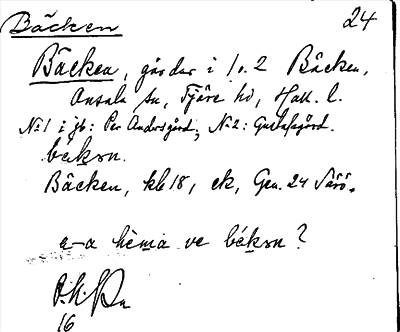 Bäcken 24
Bäcken, gårdar i 1 o. 2 Bäcken,
Onsala sn, Fjäre hd, Hall. l.
No 1 i jb: Per Andersgård, No 2: Gustafsgård.
békɔn.
Bäcken, kb 18, ek, Gen. 24 Särö.
a-a hèma ve békɔn?
16